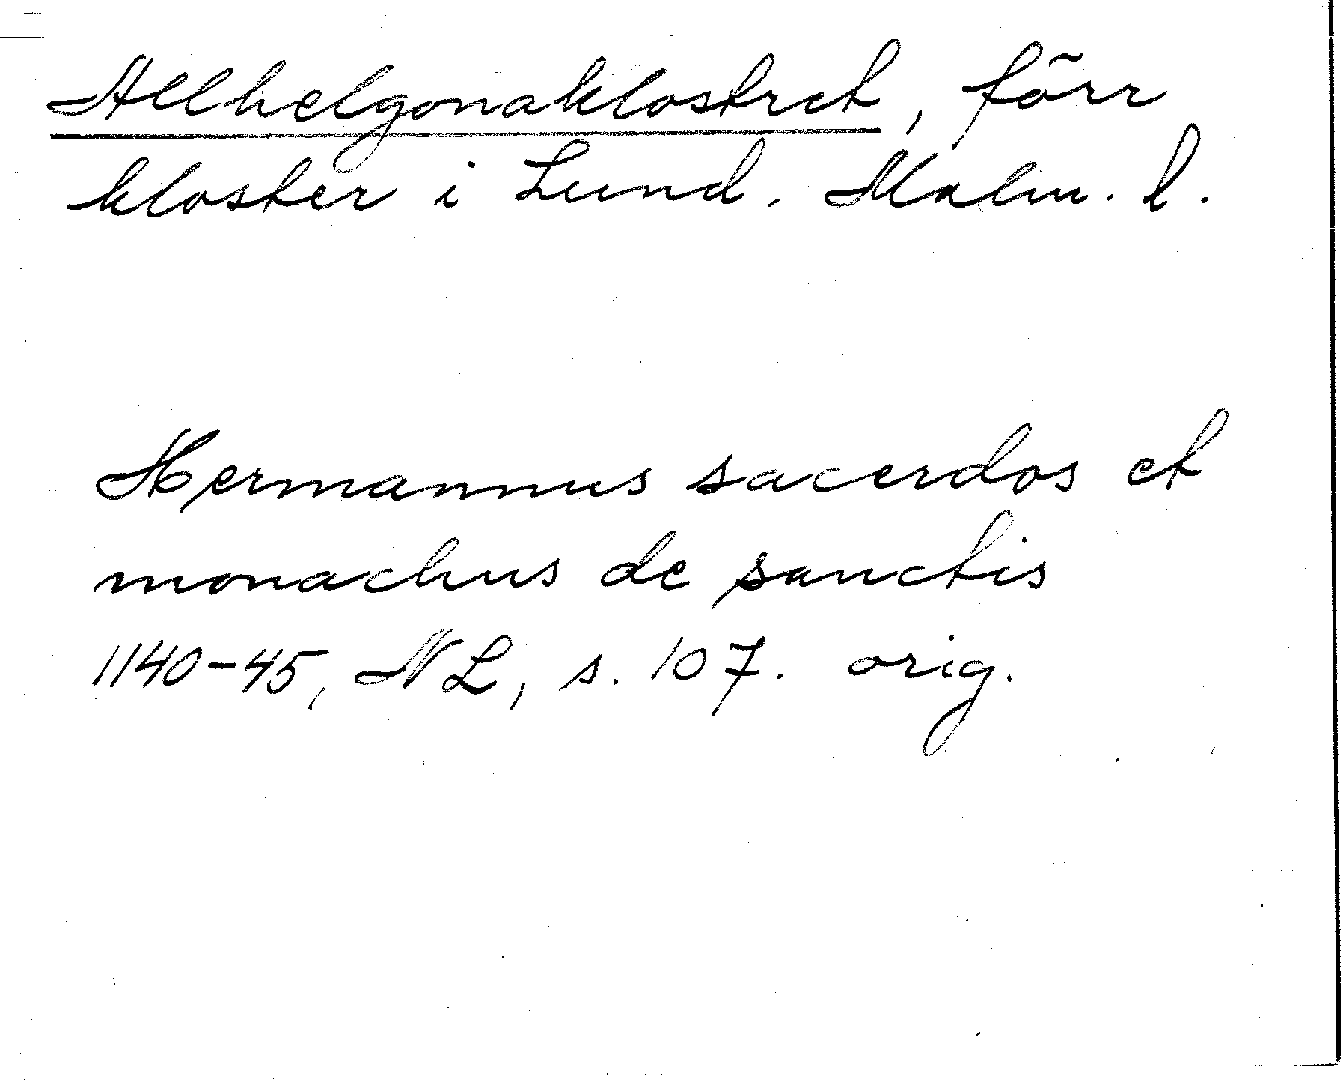 Allhelgonaklostret, förr
kloster i Lund. Malm. l.
Hermannus sacerdos et
monachus de sanctis
1140-45, NL, s. 107. orig.